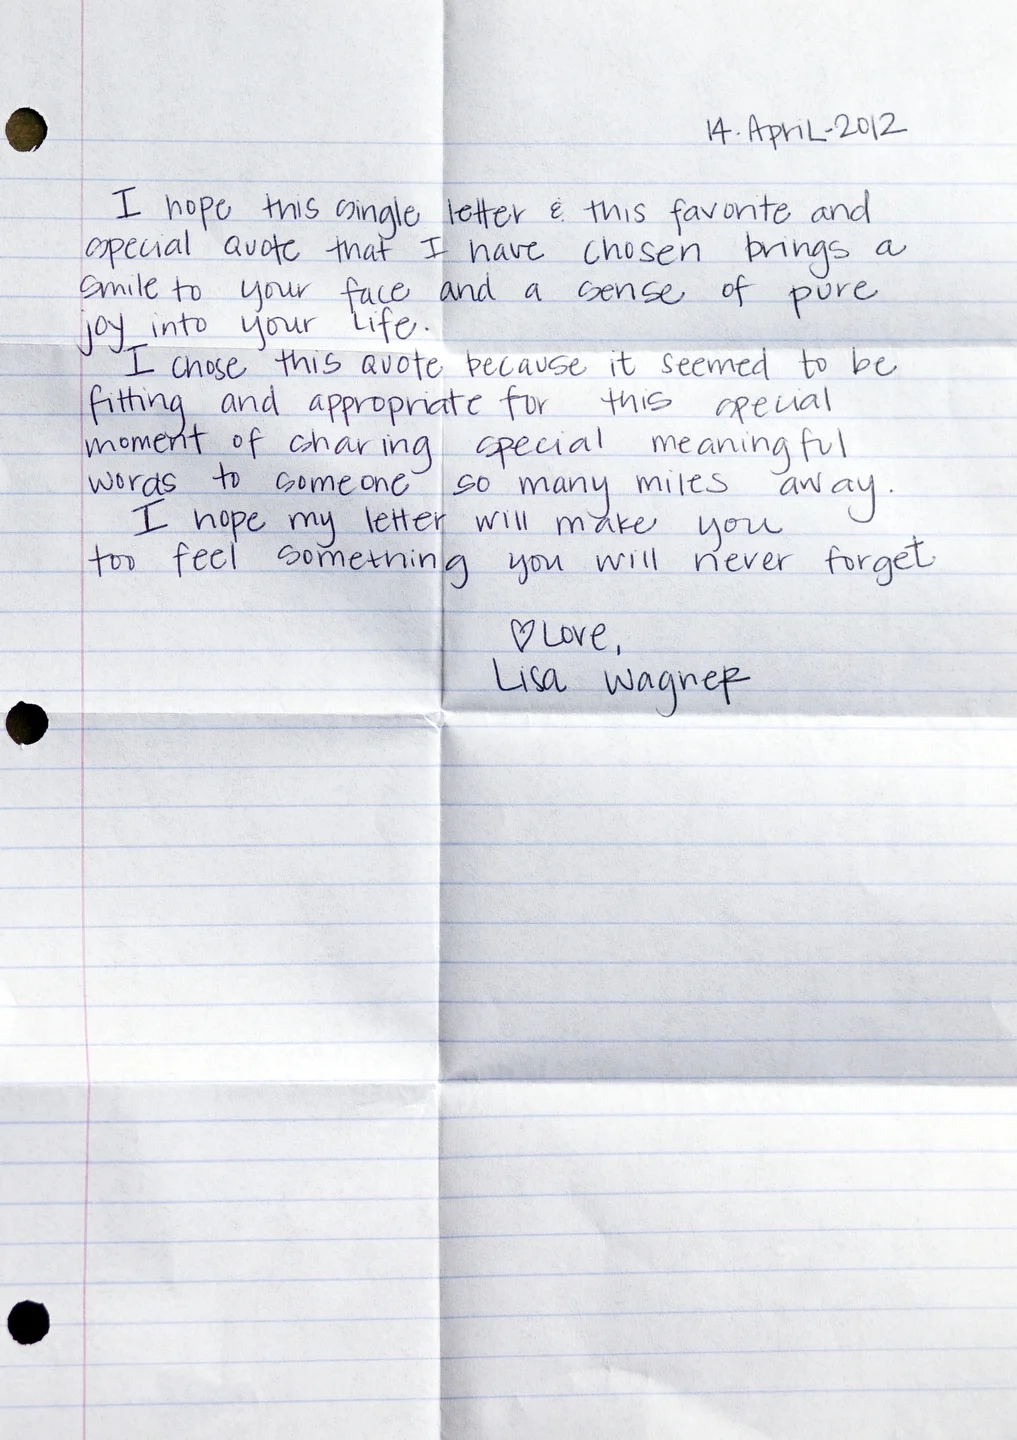 14. April-2012
I hope this single letter & this favorite and
special quote that I have chosen brings a
smile to your face and a sense of pure
joy into your life.
I chose this quote because it seemed to be
fitting and appropriate for this special
moment of sharing special meaningful
words to someone so many miles away.
I hope my letter will make you
too feel something you will never forget
♡ Love,
Lisa Wagner